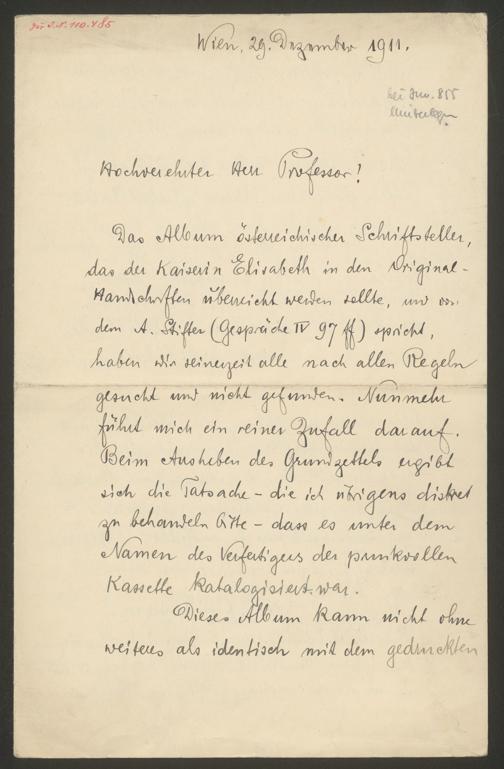 Zu I.N. 110.485
Wien, 29. Dezember 1911.
bei Inv. 855
Hochverehrter Herr Professor!
Das Album österreichischer Schriftsteller,
das der Kaiserin Elisabeth in den Original-
Handschriften überreicht werden sollte, und von
dem A. Stifter (Gespräche IV 97 ff) spricht,
haben wir seinerzeit alle nach allen Regeln
gesucht und nicht gefunden. Nunmehr
führt mich ein reiner Zufall darauf.
Beim Ausheben des Grundzettels ergibt
sich die Tatsache – die ich übrigens diskret
zu behandeln bitte – dass es unter dem
Namen des Verfertigers der prunkvollen
Kassette katalogisiert war.
Dieses Album kann nicht ohne
weiteres als identisch mit dem gedruckten